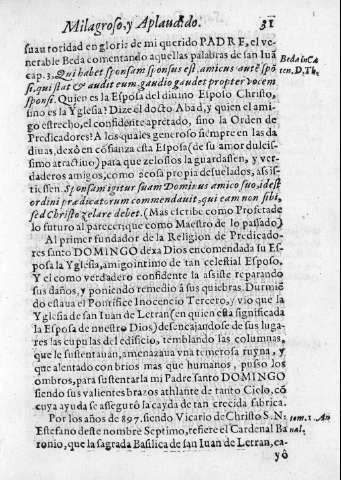 Milagroso, y Aplaudido. 31
suau toridad en gloria de mi querido PADRE, el ve-
nerable Beda comentando aquellas palabras de san Iuã
cap. 3. Qui habet sponsam sponsus est, amicus autẽ spõ
si, qui stat & audit eum gaudio gaudet propter vocem
sponsi. Quien es la Esposa del diuino Esposo Christo,
sino es la Yglesia? Dize el docto Abad, y quien el ami-
go estrecho, el confidente apretado, sino la Orden de
Predicadores? A los quales generoso siempre en las da
diuas, dexò en cõfiança esta Esposa (de su amor dulcis-
simo atractiuo) para que zelosos la guardassen, y ver-
daderos amigos, como a cosa propia desuelados, assis-
tiessen Sponsam igitur suam Dominus amico suo, idest
ordini prædicatorum commendauit, qui eam non sibi,
sed Christo zelare debet. (Mas escribe como Profeta de
lo futuro al parecer; que como Maestro de lo passado)
Al primer fundador de la Religion de Predicado-
res santo DOMINGO dexa Dios encomendada su Es-
posa la Yglesia, amigo intimo de tan celestial Esposo,
Y el como verdadero confidente la assiste reparando
sus daños, y poniendo remedio â sus quiebras. Durmiẽ
do estaua el Pontifice Inocencio Tercero, y vio que la
Yglesia de san Iuan de Letran (en quien està significada
la Esposa de nuestro Dios) desencajandose de sus luga-
res las cupulas del edificio, temblando las columnas,
que le sustentauan, amenazaua vna temerosa ruyna, y
que alentado con brios mas que humanos, puso los
ombros, para sustentarla mi Padre santo DOMINGO
siendo sus valientes brazos athlante de tanto Cielo, cõ
cuya ayuda se assegurò la cayda de tan crecida fabrica.
Por los años de 897. siendo Vicario de Christo S. N.
Estefano deste nombre Septimo, refiere el Cardenal Ba
ronio, que la sagrada Basilica de san Iuan de Letran, ca-
yò
Beda in Ca
ten. D. Th.
tom. 1. An
nal.